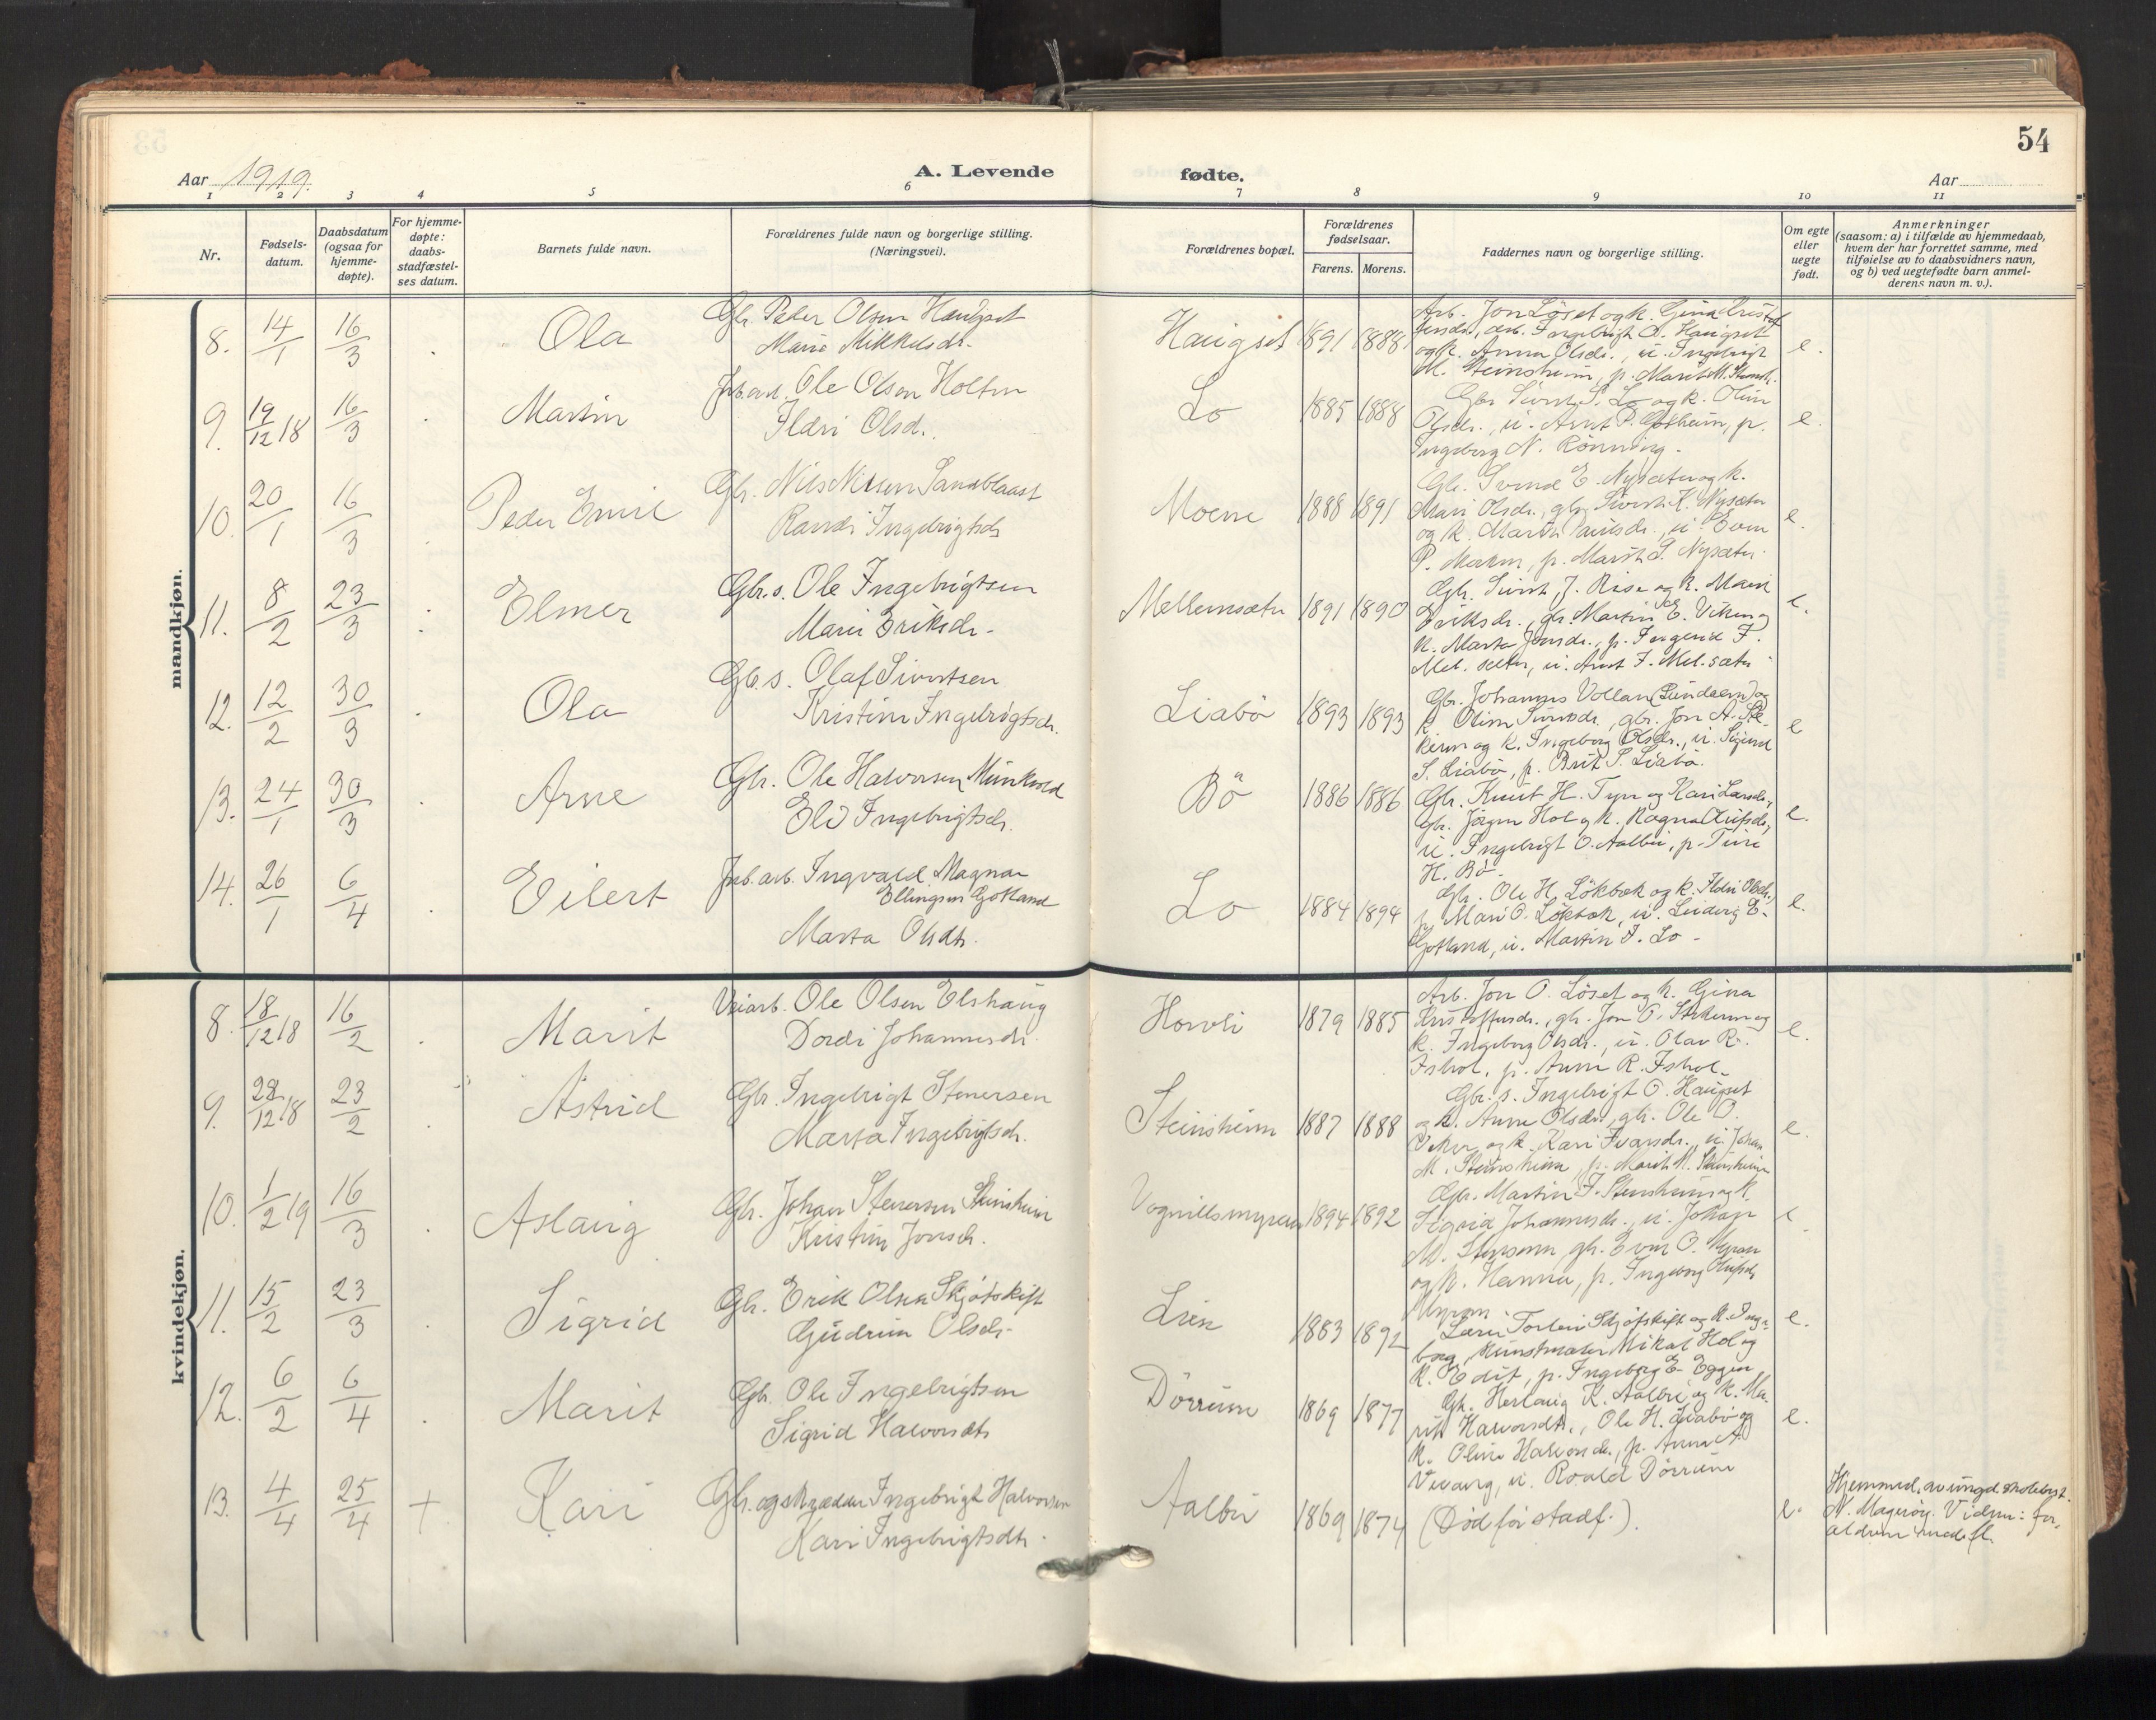 54
Aar 1919.
A. Levende
fødte.
Aar
1 2 3 4 5 6 7 8 9 10 11
Nr.
Fødsels-
datum.
Daabsdatum
(ogsaa for
hjemme-
døpte).
For hjemme-
døpte:
daabs-
stadfæstel-
ses datum.
Barnets fulde navn.
Forældrenes fulde navn og borgerlige stilling.
(Næringsvei).
Forældrenes bopæl.
Forældrenes
fødselsaar.
Farens. Morens.
Faddernes navn og borgerlige stilling.
Om egte
eller
uegte
født.
Anmerkninger
(saasom: a) i tilfælde av hjemmedaab,
hvem der har forrettet samme, med
tilføielse av to daabsvidners navn,
og b) ved uegtefødte barn anmel-
derens navn m. v.).
mandkjøn.
8. 14/1 16/3 Ola
Gbr. Peder Olsen Haugset
Marie Mikkelsdr.
Haugset 1891 1888
Arb. Jon Löset og k. Gina Kristof
fersdr., arb. Ingebrigt O. Haugset
og k. Anna Olsdr., u. Ingebrigt
M. Steinsheim, p. Marit M. Steinsh.
e.
9. 19/12 18 16/3 Martin
Jrb. arb. Ole Olsen Holten
Ildri Olsd.
Lo 1885 1888
Gbr. Sivert S. Lo og k. Olin
Olsdr., u. Arnt P.
Ingeborg N. Rönning.
e.
10. 20/1 16/3 Peder Emil
Gbr. Nils Nilsen Sandblaast
Randi Ingebrigtsdr
Moene 1888 1891
Gbr. Svend E. Nysæter og k.
Mari Olsdr., gbr. Sivert K. Nysæter
og k. Marit u. Even
P. p. Marit S. Nysæter.
e.
11. 8/2 23/3 Elmer
Gbr. s. Ole Ingebrigtsen
Mari Eriksdr.
Mellemsæter 1891 1890
Gbr. Sivert J. Rise og k. Mari
Eriksdr., gbr. Martin E. Viken og
k. Marta Jonsdr., p. Ingerid I.
Mel. seter, u. Arnt I. Mel. sæter
e.
12. 12/2 30/3 Ola
Gb. s. Olaf Sivertsen
Kristine Ingebrigtsdr.
Liabö 1893 1893
Gbr. Johannes Vollan (Sundalen) og
k. Oline Sivertsdr., gbr. Jon A. Ste-
kerun og k. Ingeborg Olsdr., u.
S. Liabö, p. Brit S. Liabö.
e
13. 24/1 30/3 Arne
Gbr. Ole Halvorsen Munkvold
Eli Ingebrigtsdr.
Bö 1886 1886
Gbr. Knut H. Tyn og Kari Larsdr.,
Gbr. Jörgen Hol og k. Ragna Olufsdr.,
u. Ingebrigt O. Aalbu, p. Turi
H. Bö.
e.
14. 26/1 6/4 Eilert
Jrb. arb. Ingvald Magnar
Ellingsen Gotland
Marta Olsdtr.
Lo 1884 1894
Gbr. Ole H. Lökbak og k. Ildri Olsdr.,
p. Mari O. Lökbak, u. Ludvig E.
Gotland, u. Martin I. Lo
e.
kvindekjøn.
8. 18/12 18 16/2 Marit
Veiarb. Ole Olsen Elshaug
Dordi Johannesdr.
Horvli 1879 1885
Arb. Jon O. Löset og k. Gina
Kristoffersdr., gbr. Jon O. Stekerun og
k. Ingeborg Olsdr., u. Olav R.
Ishol, p. Anne R. Ishol.
e.
9. 28/12 18 23/2 Astrid
Gbr. Ingebrigt Stenersen
Marta Ingebrigtsdr.
Steinsheim 1887 1888
Gbr. s. Ingebrigt O. Haugset
og k. Anne Olsdr., gbr. Ole O.
og k. Kari Ivarsdr., u. Johan
M. Steinsheim, p. Marit M. Steinsheim
e.
10. 1/2 19 16/3 Aslaug
Gbr. Johan Stenersen Steinsheim
Kristin Jonsdr.
Vognillsmyren 1894 1892
Gbr. Martin I. Stensheim og k.
Sigrid Johannesdr., u. Johan
M. Stensem, gbr. Even O. Myran
og k. Hanna, p. Ingeborg Olufsdr
Myran
e
11. 15/2 23/3 Sigrid
Gbr. Erik Olsen Skjötskift
Gudrun Olsdr.
Lien 1883 1892
Lærer Torleiv Skjötskift og k. Inge-
borg, Kunstmaler Mikal Hol og
k. Edit, p. Ingeborg E. Eggen
e.
12. 6/2 6/4 Marit
Gbr. Ole Ingebrigtsen
Sigrid Halvorsdtr
Dörrum 1869 1877
Gbr. Herlaug K. Aalbu og k. Ma-
rit Halvorsdtr., Ole H. Liabö og
k. Oline Halvorsdr., p. Anne A.
Vevang, u. Roald Dörrum
e.
13. 4/4 25/4 + Kari
Gbr. og skrædder Ingebrigt Halvorsen
Kari Ingebrigtsdtr.
Aalbu 1869 1874
(Död för stadf.).
e.
Hjemmed. av ungd.skolebest.
N. Mageröy. Vidne: for-
ældrene med fl.